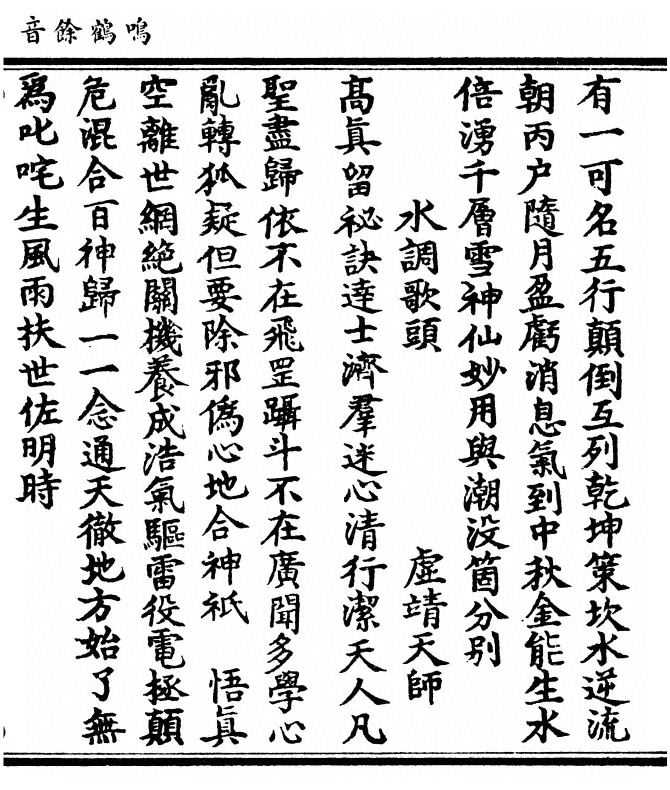 鳴鶴餘音
有一可名五行顛倒互列乾坤策坎水逆流
朝丙户隨月盈虧消息氣到中秋金能生水
倍湧千層雪神仙妙用與潮没箇分别
水調歌頭 虛靖天師
髙眞留祕訣達士濟羣迷心清行潔天人凡
聖盡歸依不在飛罡躡斗不在廣聞多學心
亂轉狐疑但要除邪僞心地合神祇 悟眞
空離世網絶關機養成浩氣驅雷役電拯顛
危混合百神歸一一念通天徹地方始了無
爲叱咤生風雨扶世佐明時